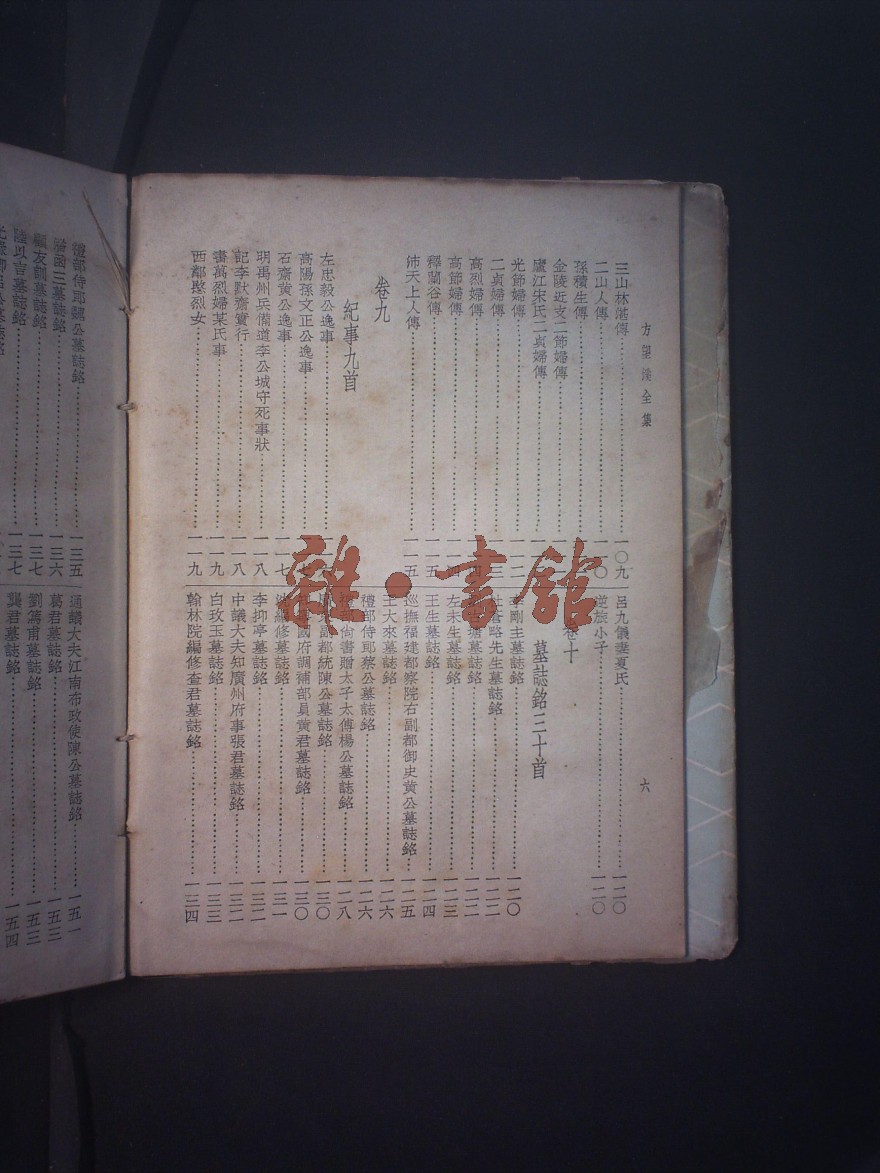 方望溪全集
六
三山林湛傳 一〇九
二山人傳 一一〇
孫積生傳
金陵近支二節婦傳
廬江宋氏二貞婦傳
光節婦傳 一一二
二貞婦傳
高烈婦傳
高節婦傳
釋蘭谷傳 一一五
沛天上人傳 一一五
卷九
紀事九首
左忠毅公逸事
高陽孫文正公逸事
石齋黃公逸事 一一七
明禹州兵備道李公城守死事狀 一一八
記李默齋實行 一一八
書萬烈婦某氏事 一一九
西鄰愍烈女 一一九
呂九儀妻夏氏 一二〇
逆旅小子 一二〇
卷十
墓誌銘三十首
李剛主墓誌銘 一二〇
杜蒼略先生墓誌銘 一二二
古塘墓誌銘 一二二
左未生墓誌銘 一二三
王生墓誌銘 一二四
巡撫福建都察院右副都御史黃公墓誌銘 一二五
王大來墓誌銘 一二六
禮部侍郎蔡公墓誌銘 一二六
禮部尚書贈太子太傅楊公墓誌銘 一二八
副都統陳公墓誌銘 一三〇
國府調補部員黃君墓誌銘 一三〇
編修墓誌銘 一三一
李抑亭墓誌銘 一三二
中議大夫知廣州府事張君墓誌銘 一三二
白玫玉墓誌銘 一三三
翰林院編修查君墓誌銘 一三四
禮部侍郎魏公墓誌銘 一三五
墓誌銘 一三六
顧友訓墓誌銘 一三七
陸以言墓誌銘 一三七
通議大夫江南布政使陳公墓誌銘 一五一
葛君墓誌銘 一五三
劉篤甫墓誌銘 一五三
龔君墓誌銘 一五四
雜·書館